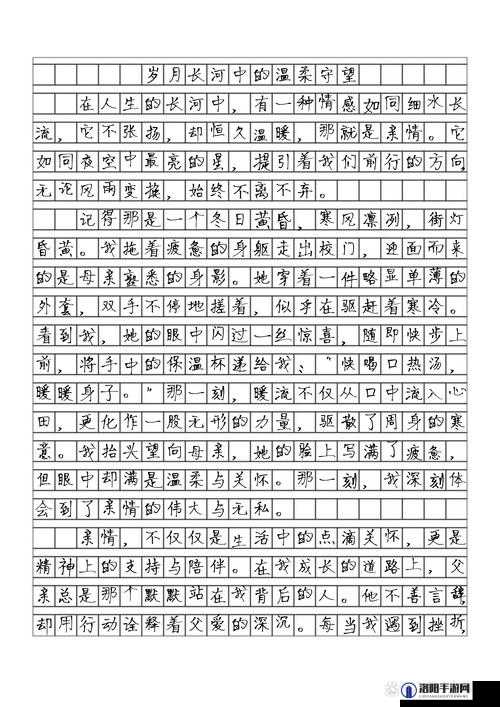 岁月长河中的温柔守望
在人生的长河中，有一种情感如同细水长
流，它不张扬，却恒久温暖，那就是亲情。它
如同夜空中最亮的星，提引着我们前行的方向
无论风雨变换，始终不离不弃。
记得那是一个冬日黄昏，寒风凛冽，街灯
昏黄。我拖着疲惫的身躯走出校门，迎面而来
的是母亲熟悉的身影。她穿着一件略显单薄的
外套，双手不停地搓着，似乎在驱赶着寒冷。
看到我，她的眼中闪过一丝惊喜，随即快步上
前，将手中的保温杯递给我、“快喝口热汤，
暖暖身子。”那一刻，暖流不仅从口中流入心
田，更化作一股无形的力量，驱散了周身的寒
意。我抬兴望向母亲，她的脸上写满了疲惫，
但眼中却满是温柔与关怀。那一刻，我深刻体
会到了亲情的伟大与无私。
亲情，不仅仅是生活中的点滴关怀，更是
精神上的支持与陪伴。在我成长的道路上，父
亲总是那个默默站在我背后的人。他不善言辞
却用行动诠释着父爱的深沉。每当我遇到挫折，
洛阳手游网